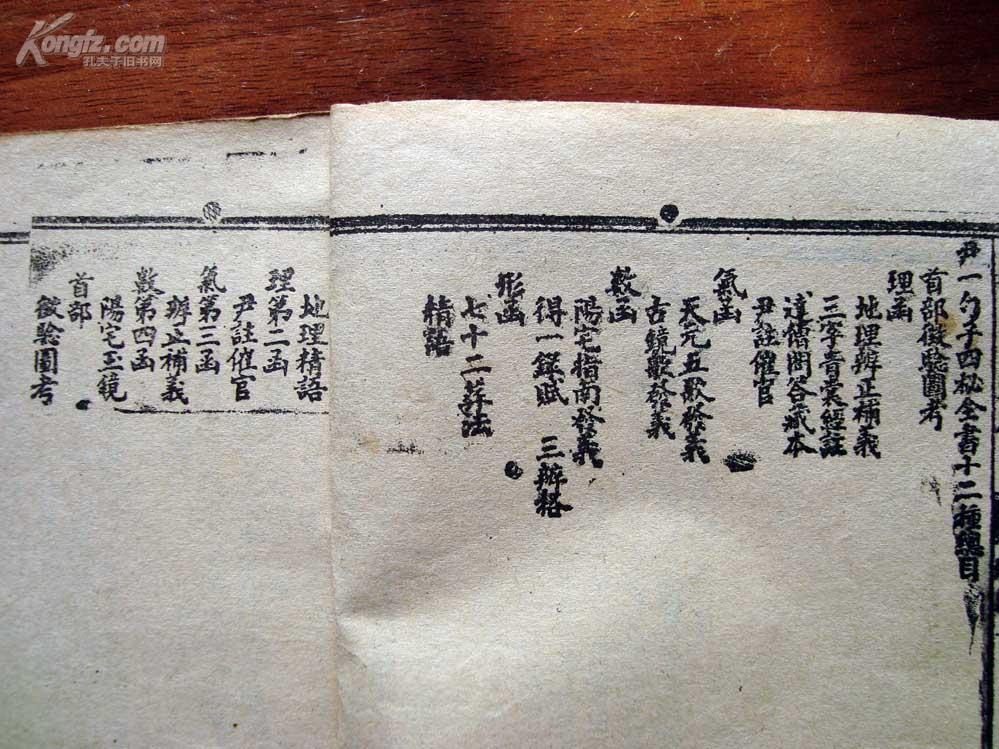 Kongfz.com
孔夫子旧书网
尹一勺子四秘全書十二種總目
首部徵驗圖考
理函
地理辨正補義
三字青囊經註
達僧問答藏本
尹註催官
氣函
天元五歌發義
古鏡歌發義
數函
陽宅指南發義
得一錄賦 三辨格
形函
七十二葬法
精語
地理精語
理第二函
尹註催官
氣第三函
辨正補義
數第四函
陽宅玉鏡
首部
徵驗圖考